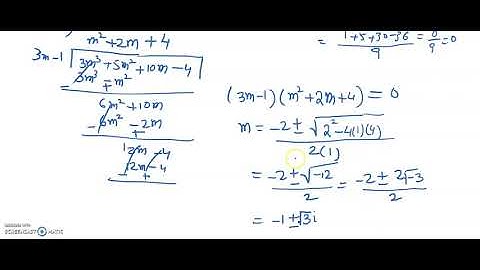 m² + 2m + 4
3m-1 ) 3m³ + 5m² + 10m - 4
3m³ - m²
- +
6m² + 10m
6m² - 2m
- +
12m - 4
12m - 4
- +
= (1+5+30-36)/9 = 0/9 = 0
(3m-1)(m² + 2m + 4) = 0
m = (-2 ± √(2² - 4(1)(4)))/2(1)
= (-2 ± √-12)/2 = (-2 ± 2√-3)/2
= -1 ± √3i
RECORDED WITH
SCREENCAST-O-MATIC